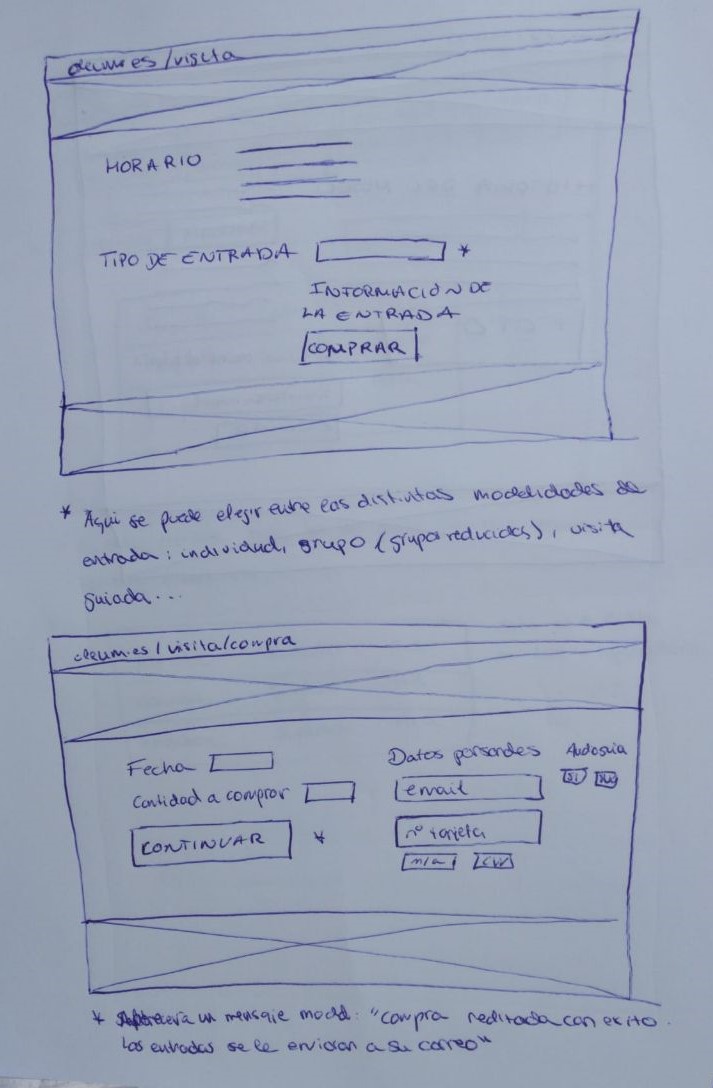 deum.es/visita
HORARIO
TIPO DE ENTRADA *
INFORMACIÓN DE
LA ENTRADA
COMPRAR
* Aqui se puede elegir entre las distintas modalidades de
entrada: individual, grupo (grupos reducidos), visita
guiada...
deum.es/visita/compra
Fecha
Cantidad a comprar
CONTINUAR *
Datos personales
email
nº tarjeta
m/a CVV
Audioguia
SI NO
* Aparecera un mensaje modal: "Compra realizada con exito.
Las entradas se le envioran a su correo"